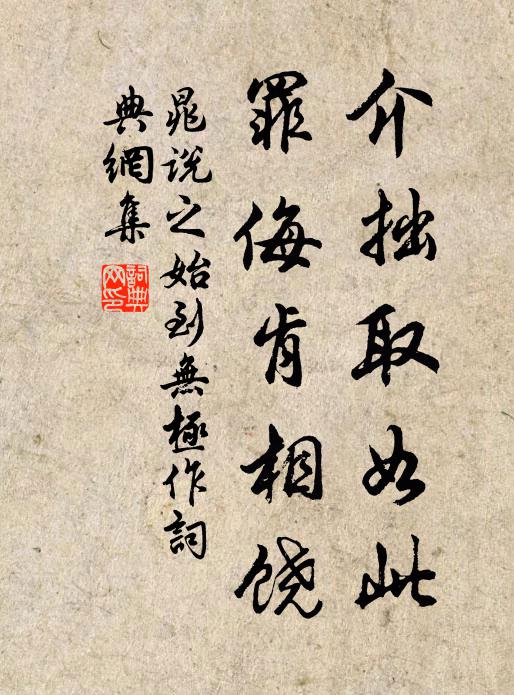 介拙取如此
罪侮肯相饶
晁説之始到無極作詞
典網集
詞典網印